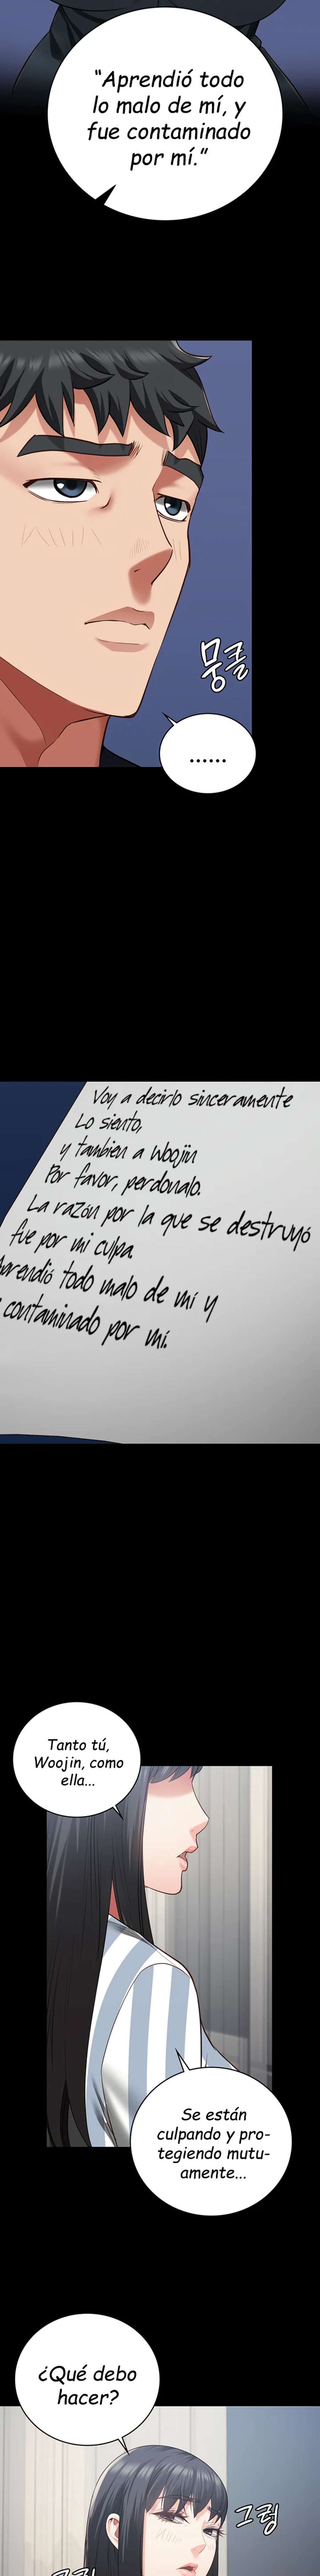 “Aprendió todo
lo malo de mí, y
fue contaminado
por mí.”
뭉클
......
Voy a decirlo sinceramente
Lo siento,
y tambien a Woojin
Por favor, perdonalo.
La razón por la que se destruyó
fue por mi culpa.
Aprendió todo malo de mí y
contaminado por mí.
Tanto tú,
Woojin, como
ella...
Se están
culpando y pro-
tegiendo mutu-
amente...
¿Qué debo
hacer?
그렁